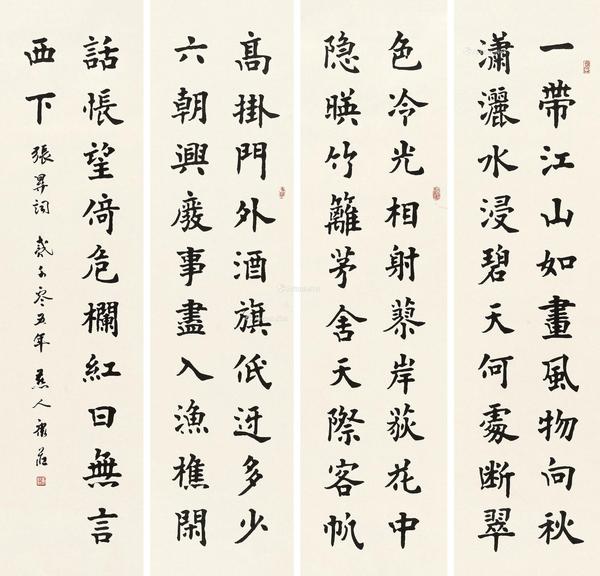 一帶江山如畫風物向秋
瀟灑水浸碧天何處断翠
色冷光相射蓼岸荻花中
隐暎竹籬茅舍天際客帆
髙掛門外酒旗低迓多少
六朝興廢事盡入漁樵閑
話悵望倚危欄紅日無言
西下 張昇詞 貳千零五年 燕人康莊